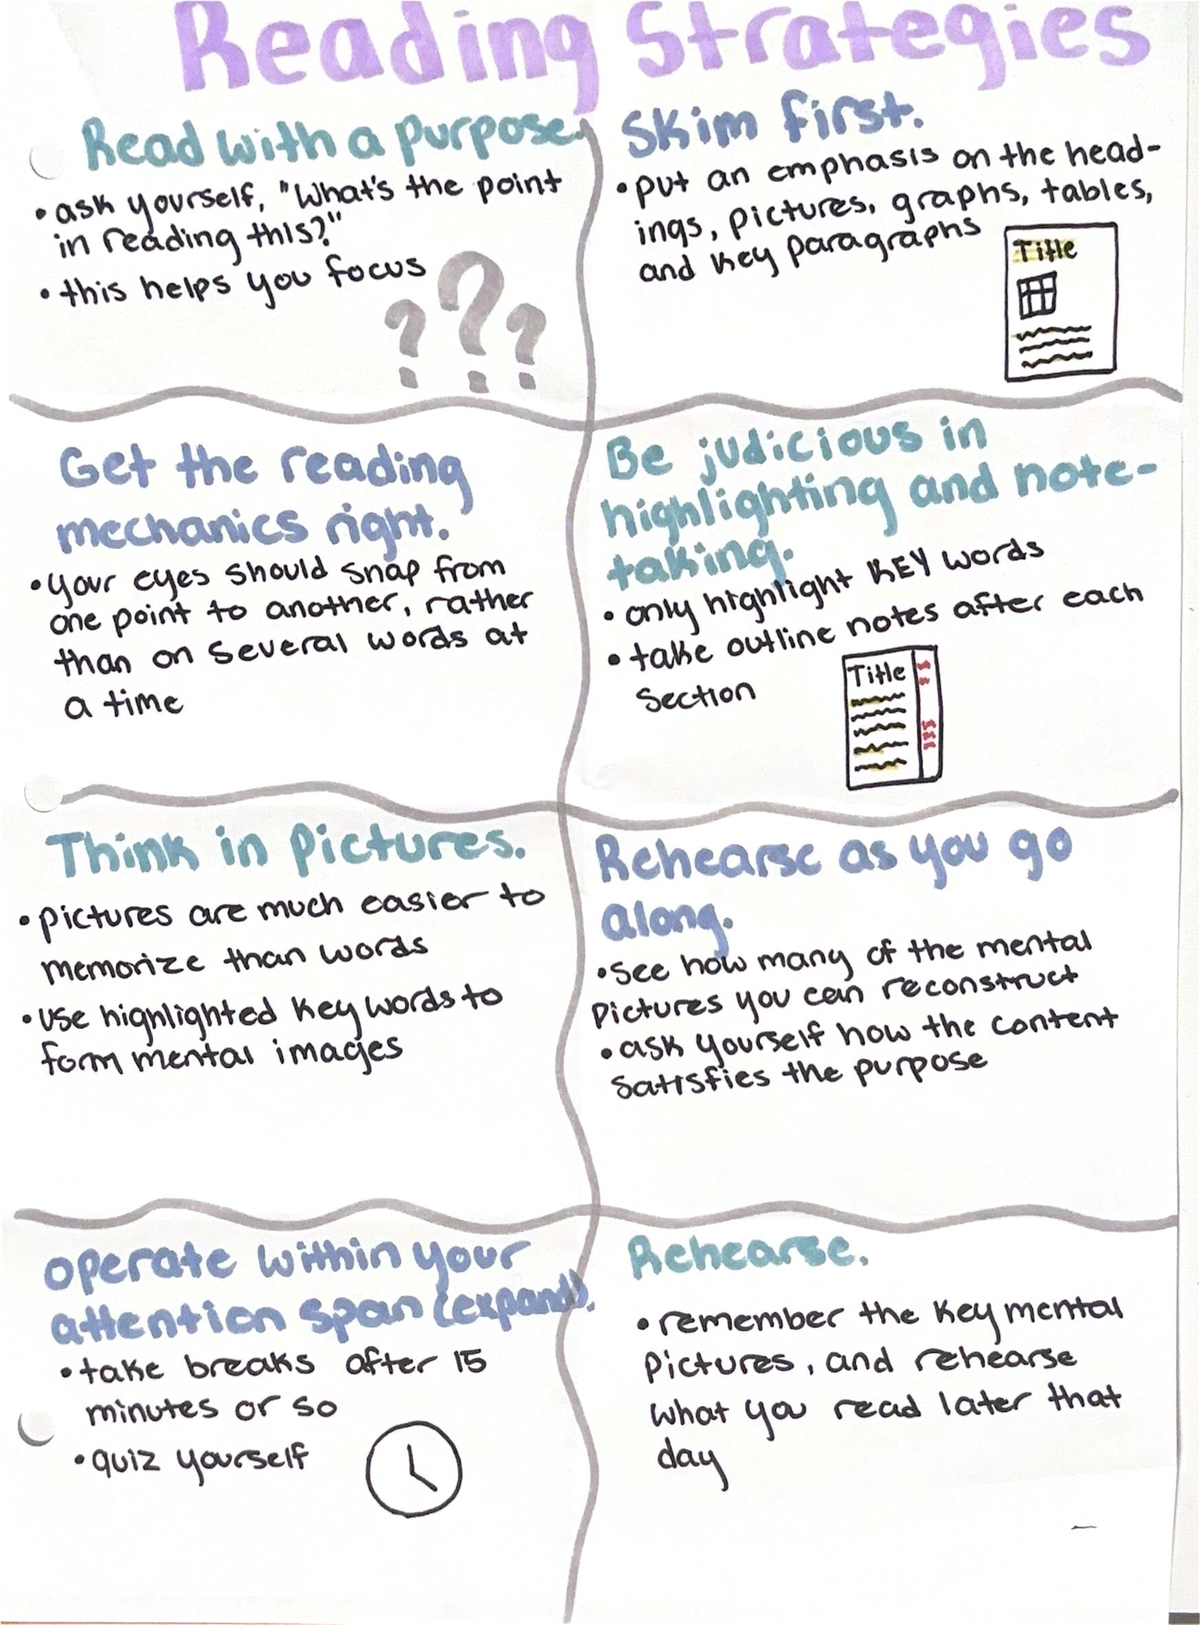 Reading Strategies
Read with a purpose.
• ask yourself, "What's the point
in reading this?"
• this helps you focus
? ? ?
Skim first.
• put an emphasis on the head-
ings, pictures, graphs, tables,
and key paragraphs
Title
Get the reading
mechanics right.
• your eyes should snap from
one point to another, rather
than on several words at
a time
Be judicious in
highlighting and note-
taking.
• only highlight KEY words
• take outline notes after each
section
Title
Think in pictures.
• pictures are much easier to
memorize than words
• use highlighted key words to
form mental images
Rehearse as you go
along.
• see how many of the mental
pictures you can reconstruct
• ask yourself how the content
satisfies the purpose
operate within your
attention span (expand).
• take breaks after 15
minutes or so
• quiz yourself
Rehearse.
• remember the key mental
pictures, and rehearse
what you read later that
day